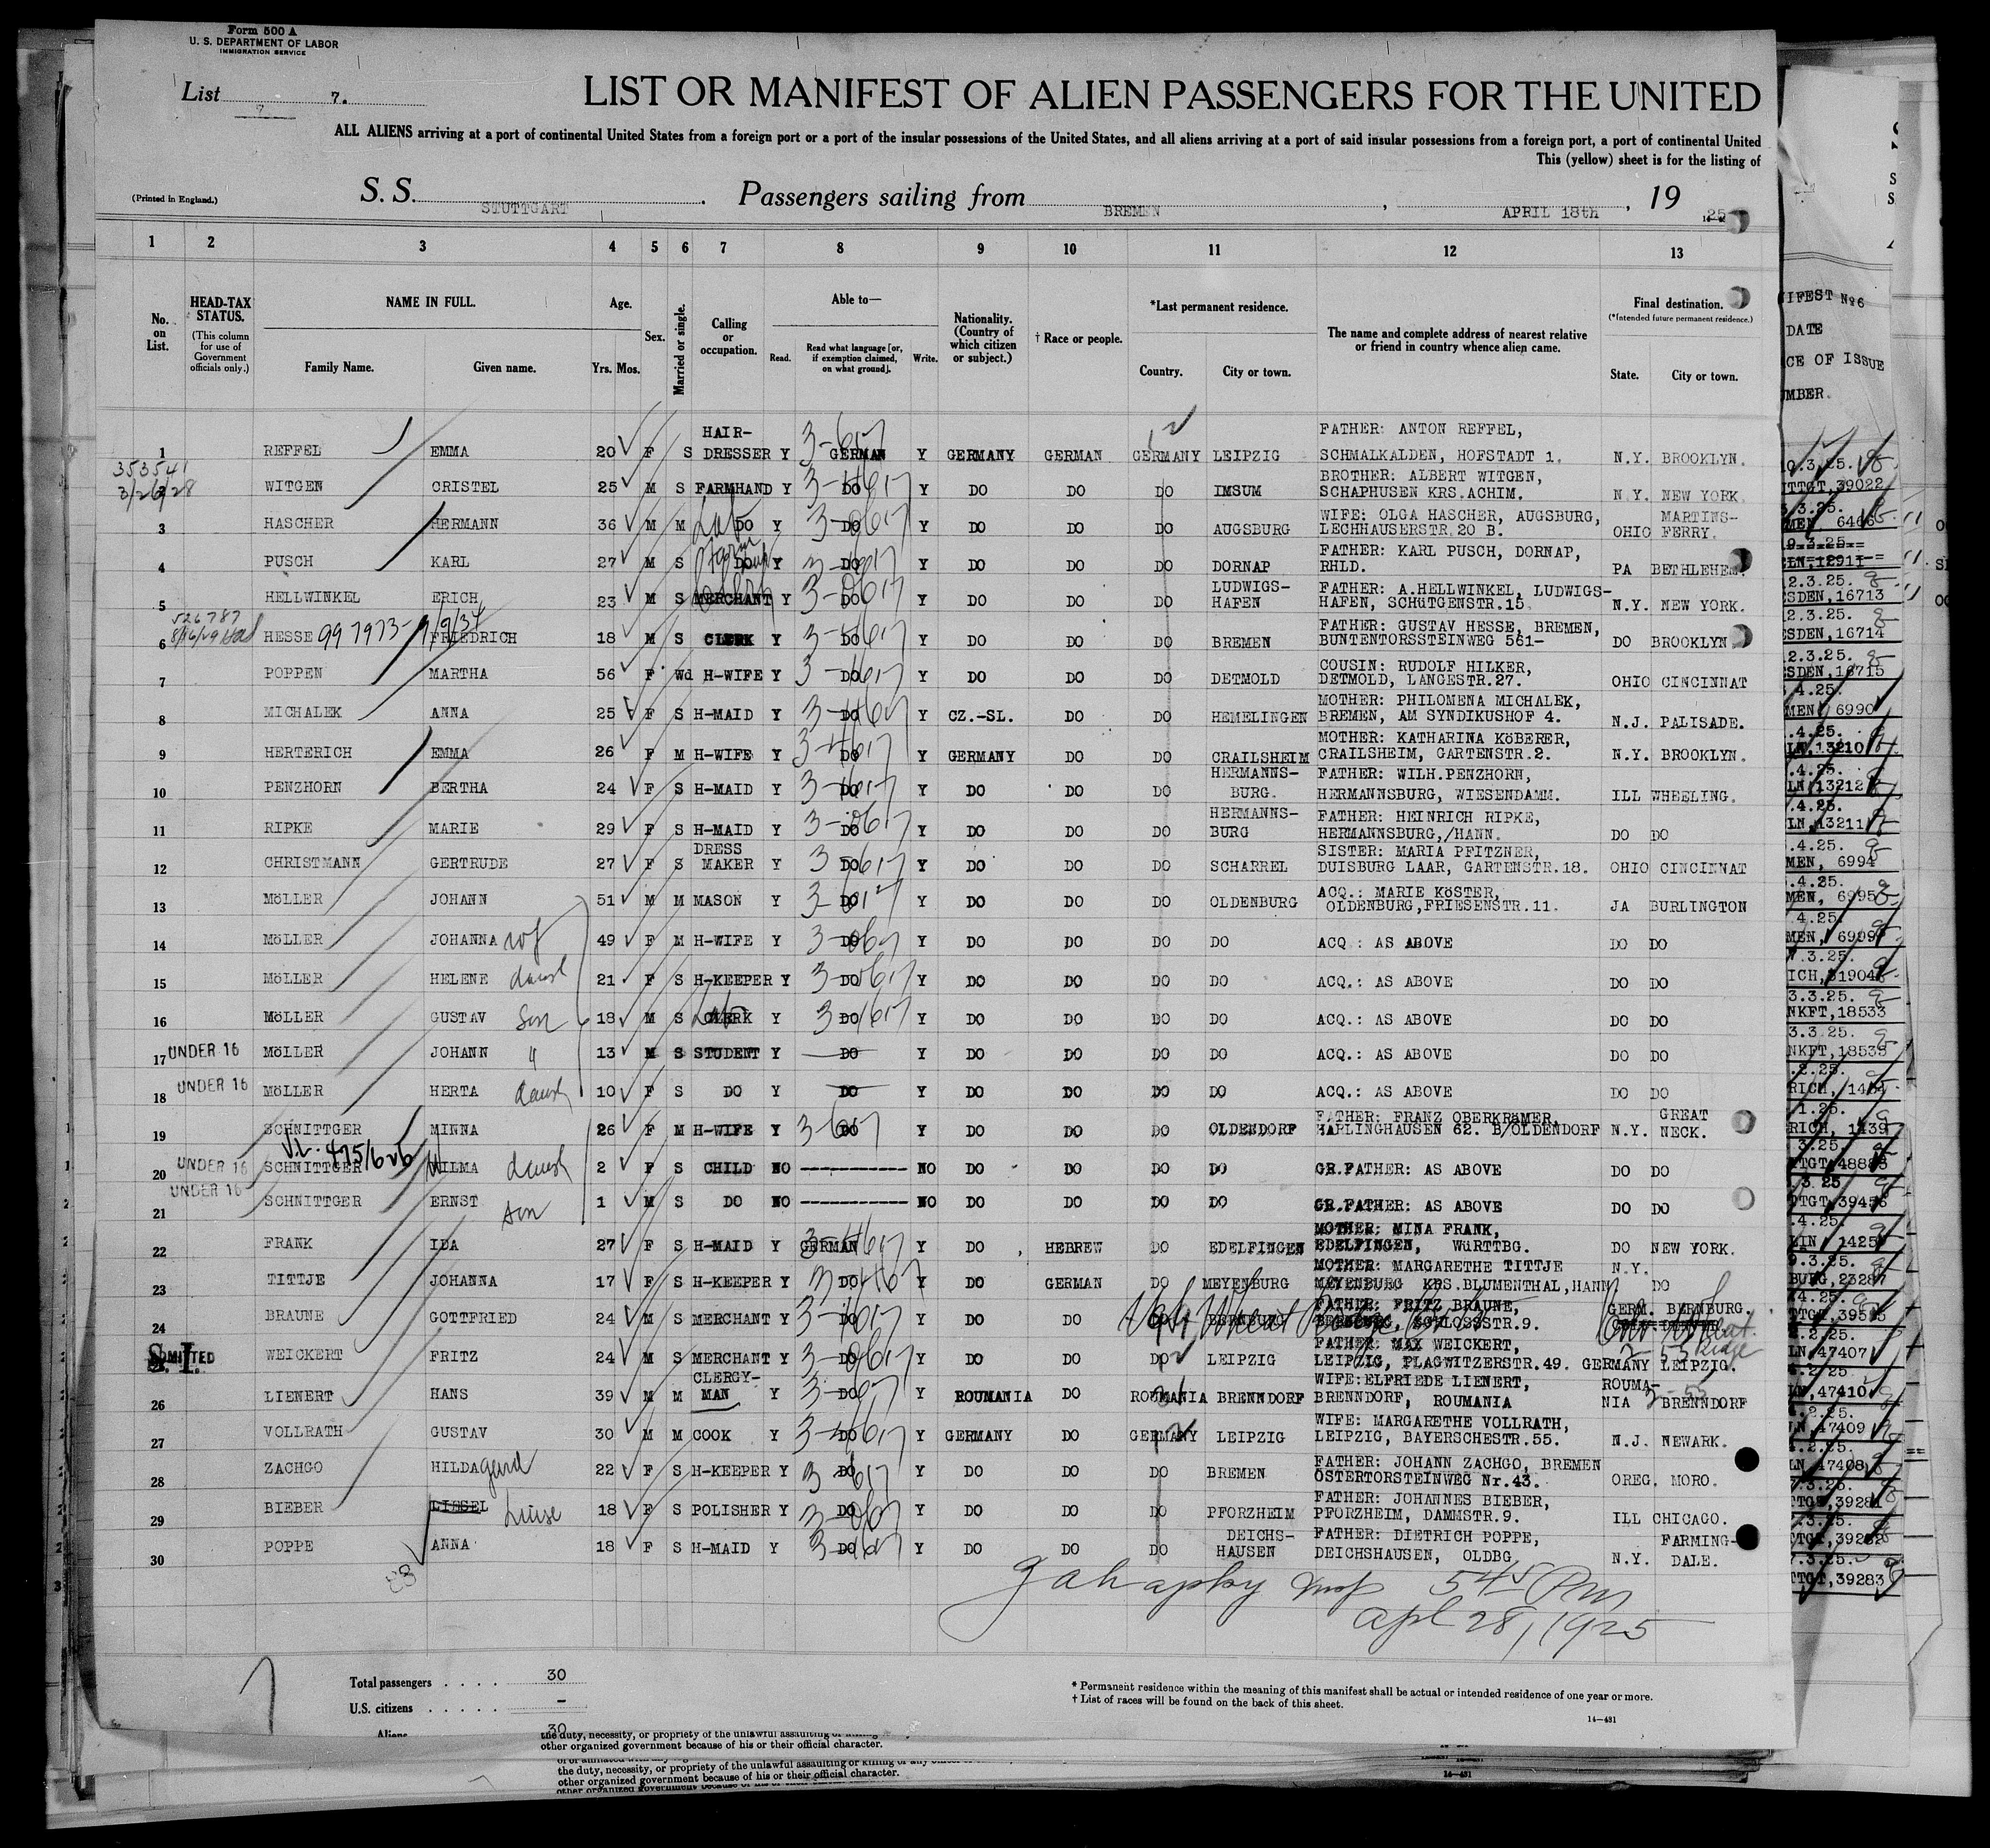 Form 500 A
U. S. DEPARTMENT OF LABOR
IMMIGRATION SERVICE
List 7.
7
LIST OR MANIFEST OF ALIEN PASSENGERS FOR THE UNITED
ALL ALIENS arriving at a port of continental United States from a foreign port or a port of the insular possessions of the United States, and all aliens arriving at a port of said insular possessions from a foreign port, a port of continental United
This (yellow) sheet is for the listing of
(Printed in England.)
S. S. STUTTGART. Passengers sailing from BREMEN, APRIL 18th, 19 25
1 2 3 4 5 6 7 8 9 10 11 12 13
No. on List.
HEAD-TAX STATUS.
(This column for use of Government officials only.)
NAME IN FULL.
Family Name. Given name.
Age.
Yrs. Mos.
Sex.
Married or single.
Calling or occupation.
Able to—
Read. Read what language [or, if exemption claimed, on what ground]. Write.
Nationality. (Country of which citizen or subject.)
† Race or people.
*Last permanent residence.
Country. City or town.
The name and complete address of nearest relative or friend in country whence alien came.
Final destination.
(*Intended future permanent residence.)
State. City or town.
1 REFFEL EMMA 20 F S HAIR-DRESSER Y GERMAN Y GERMANY GERMAN GERMANY LEIPZIG FATHER: ANTON REFFEL, SCHMALKALDEN, HOFSTADT 1. N.Y. BROOKLYN.
353541
3/26/28
2 WITGEN CRISTEL 25 M S FARMHAND Y DO Y DO DO DO IMSUM BROTHER: ALBERT WITGEN, SCHAPHUSEN KRS.ACHIM. N.Y. NEW YORK.
3 HASCHER HERMANN 36 M M DO Y DO Y DO DO DO AUGSBURG WIFE: OLGA HASCHER, AUGSBURG, LECHHAUSERSTR.20 B. OHIO MARTINS-FERRY.
4 PUSCH KARL 27 M S DO Y DO Y DO DO DO DORNAP FATHER: KARL PUSCH, DORNAP, RHLD. PA BETHLEHEM.
5 HELLWINKEL ERICH 23 M S MERCHANT Y DO Y DO DO DO LUDWIGS-HAFEN FATHER: A.HELLWINKEL, LUDWIGS-HAFEN, SCHüTGENSTR.15. N.Y. NEW YORK.
526787
6 HESSE 997973- 1/9/34 FRIEDRICH 18 M S CLERK Y DO Y DO DO DO BREMEN FATHER: GUSTAV HESSE, BREMEN, BUNTENTORSSTEINWEG 561- DO BROOKLYN
7 POPPEN MARTHA 56 F Wd H-WIFE Y DO Y DO DO DO DETMOLD COUSIN: RUDOLF HILKER, DETMOLD, LANGESTR.27. OHIO CINCINNAT
8 MICHALEK ANNA 25 F S H-MAID Y DO Y CZ.-SL. DO DO HEMELINGEN MOTHER: PHILOMENA MICHALEK, BREMEN, AM SYNDIKUSHOF 4. N.J. PALISADE.
9 HERTERICH EMMA 26 F M H-WIFE Y DO Y GERMANY DO DO CRAILSHEIM MOTHER: KATHARINA KöBERER, CRAILSHEIM, GARTENSTR.2. N.Y. BROOKLYN.
10 PENZHORN BERTHA 24 F S H-MAID Y DO Y DO DO DO HERMANNS-BURG. FATHER: WILH.PENZHORN, HERMANNSBURG, WIESENDAMM. ILL WHEELING.
11 RIPKE MARIE 29 F S H-MAID Y DO Y DO DO DO HERMANNS-BURG FATHER: HEINRICH RIPKE, HERMANNSBURG,/HANN. DO DO
12 CHRISTMANN GERTRUDE 27 F S DRESS MAKER Y DO Y DO DO DO SCHARREL SISTER: MARIA PFITZNER, DUISBURG LAAR, GARTENSTR.18. OHIO CINCINNAT
13 MöLLER JOHANN 51 M M MASON Y DO Y DO DO DO OLDENBURG ACQ.: MARIE KöSTER, OLDENBURG,FRIESENSTR.11. JA BURLINGTON
14 MöLLER JOHANNA wf 49 F M H-WIFE Y DO Y DO DO DO DO ACQ.: AS ABOVE DO DO
15 MöLLER HELENE 21 F S H-KEEPER Y DO Y DO DO DO DO ACQ.: AS ABOVE DO DO
16 MöLLER GUSTAV Son 18 M S CLERK Y DO Y DO DO DO DO ACQ.: AS ABOVE DO DO
17 UNDER 16 MöLLER JOHANN " 13 M S STUDENT Y DO Y DO DO DO DO ACQ.: AS ABOVE DO DO
18 UNDER 16 MöLLER HERTA 10 F S DO Y DO Y DO DO DO DO ACQ.: AS ABOVE DO DO
19 SCHNITTGER MINNA 26 F M H-WIFE Y DO Y DO DO DO OLDENDORF FATHER: FRANZ OBERKRäMER, HAPLINGHAUSEN 62. B/OLDENDORF N.Y. GREAT NECK.
20 UNDER 16 SCHNITTGER WILMA 2 F S CHILD NO ----------- NO DO DO DO DO GR.FATHER: AS ABOVE DO DO
21 UNDER 16 SCHNITTGER ERNST son 1 M S DO NO ----------- NO DO DO DO DO GR.FATHER: AS ABOVE DO DO
22 FRANK IDA 27 F S H-MAID Y GERMAN Y DO HEBREW DO EDELFINGEN MOTHER: MINA FRANK, EDELFINGEN, WüRTTBG. DO NEW YORK.
23 TITTJE JOHANNA 17 F S H-KEEPER Y DO Y DO GERMAN DO MEYENBURG MOTHER: MARGARETHE TITTJE MEYENBURG KRS.BLUMENTHAL,HANN N.Y. DO
24 BRAUNE GOTTFRIED 24 M S MERCHANT Y DO Y DO DO BERNBURG FATHER: FRITZ BRAUNE, BERNBURG, SCHLOSSSTR.9. GERM. BERNBURG.
ADMITTED S. I.
WEICKERT FRITZ 24 M S MERCHANT Y DO Y DO DO DO LEIPZIG FATHER: MAX WEICKERT, LEIPZIG, PLAGWITZERSTR.49. GERMANY LEIPZIG.
26 LIENERT HANS 39 M M CLERGY-MAN Y DO Y ROUMANIA DO ROUMANIA BRENNDORF WIFE:ELFRIEDE LIENERT, BRENNDORF, ROUMANIA ROUMA-NIA BRENNDORF
27 VOLLRATH GUSTAV 30 M M COOK Y DO Y GERMANY DO GERMANY LEIPZIG WIFE: MARGARETHE VOLLRATH, LEIPZIG, BAYERSCHESTR.55. N.J. NEWARK.
28 ZACHGO HILDAgard 22 F S H-KEEPER Y DO Y DO DO DO BREMEN FATHER: JOHANN ZACHGO, BREMEN OSTERTORSTEINWEG Nr.43. OREG. MORO.
29 BIEBER LIESEL Luise 18 F S POLISHER Y DO Y DO DO DO PFORZHEIM FATHER: JOHANNES BIEBER, PFORZHEIM, DAMMSTR.9. ILL CHICAGO.
30 POPPE ANNA 18 F S H-MAID Y DO Y DO DO DO DEICHS-HAUSEN FATHER: DIETRICH POPPE, DEICHSHAUSEN, OLDBG N.Y. FARMING-DALE.
5 45 PM
Apl 28, 1925
Total passengers . . . . 30
U.S. citizens . . . . . –
Aliens 30
* Permanent residence within the meaning of this manifest shall be actual or intended residence of one year or more.
† List of races will be found on the back of this sheet.
14—431
the duty, necessity, or propriety of the unlawful assaulting
other organized government because of his or their official character.
the duty, necessity, or propriety of the unlawful assaulting or killing of any
other organized government because of his or their official character.
14—431